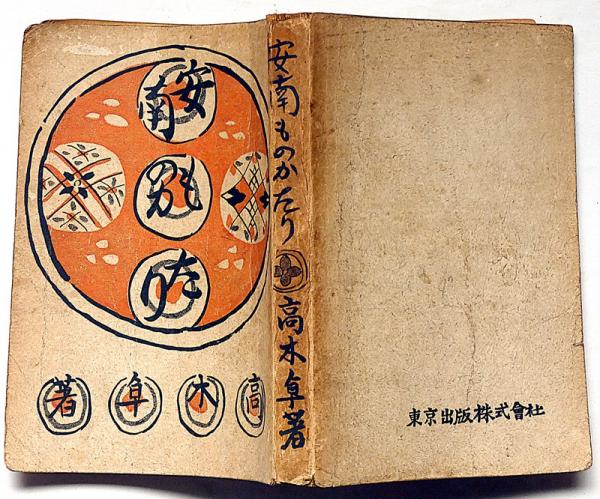 安南
ものか
たり
高木卓著
安南ものかたり
高木卓著
東京出版株式會社